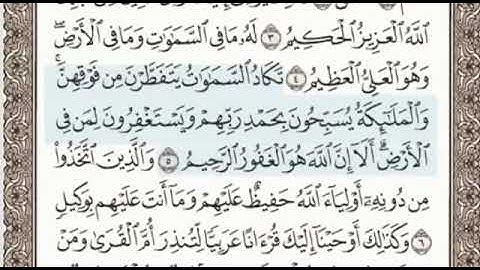 اللَّهُ الْعَزِيزُ الْحَكِيمُ ٣ لَهُ مَا فِي السَّمَاوَاتِ وَمَا فِي الْأَرْضِ ۖ
وَهُوَ الْعَلِيُّ الْعَظِيمُ ٤ تَكَادُ السَّمَاوَاتُ يَتَفَطَّرْنَ مِن فَوْقِهِنَّ ۚ
وَالْمَلَائِكَةُ يُسَبِّحُونَ بِحَمْدِ رَبِّهِمْ وَيَسْتَغْفِرُونَ لِمَن فِي
الْأَرْضِ ۗ أَلَا إِنَّ اللَّهَ هُوَ الْغَفُورُ الرَّحِيمُ ٥ وَالَّذِينَ اتَّخَذُوا
مِن دُونِهِ أَوْلِيَاءَ اللَّهُ حَفِيظٌ عَلَيْهِمْ وَمَا أَنتَ عَلَيْهِم بِوَكِيلٍ
٦ وَكَذَٰلِكَ أَوْحَيْنَا إِلَيْكَ قُرْآنًا عَرَبِيًّا لِّتُنذِرَ أُمَّ الْقُرَىٰ وَمَنْ